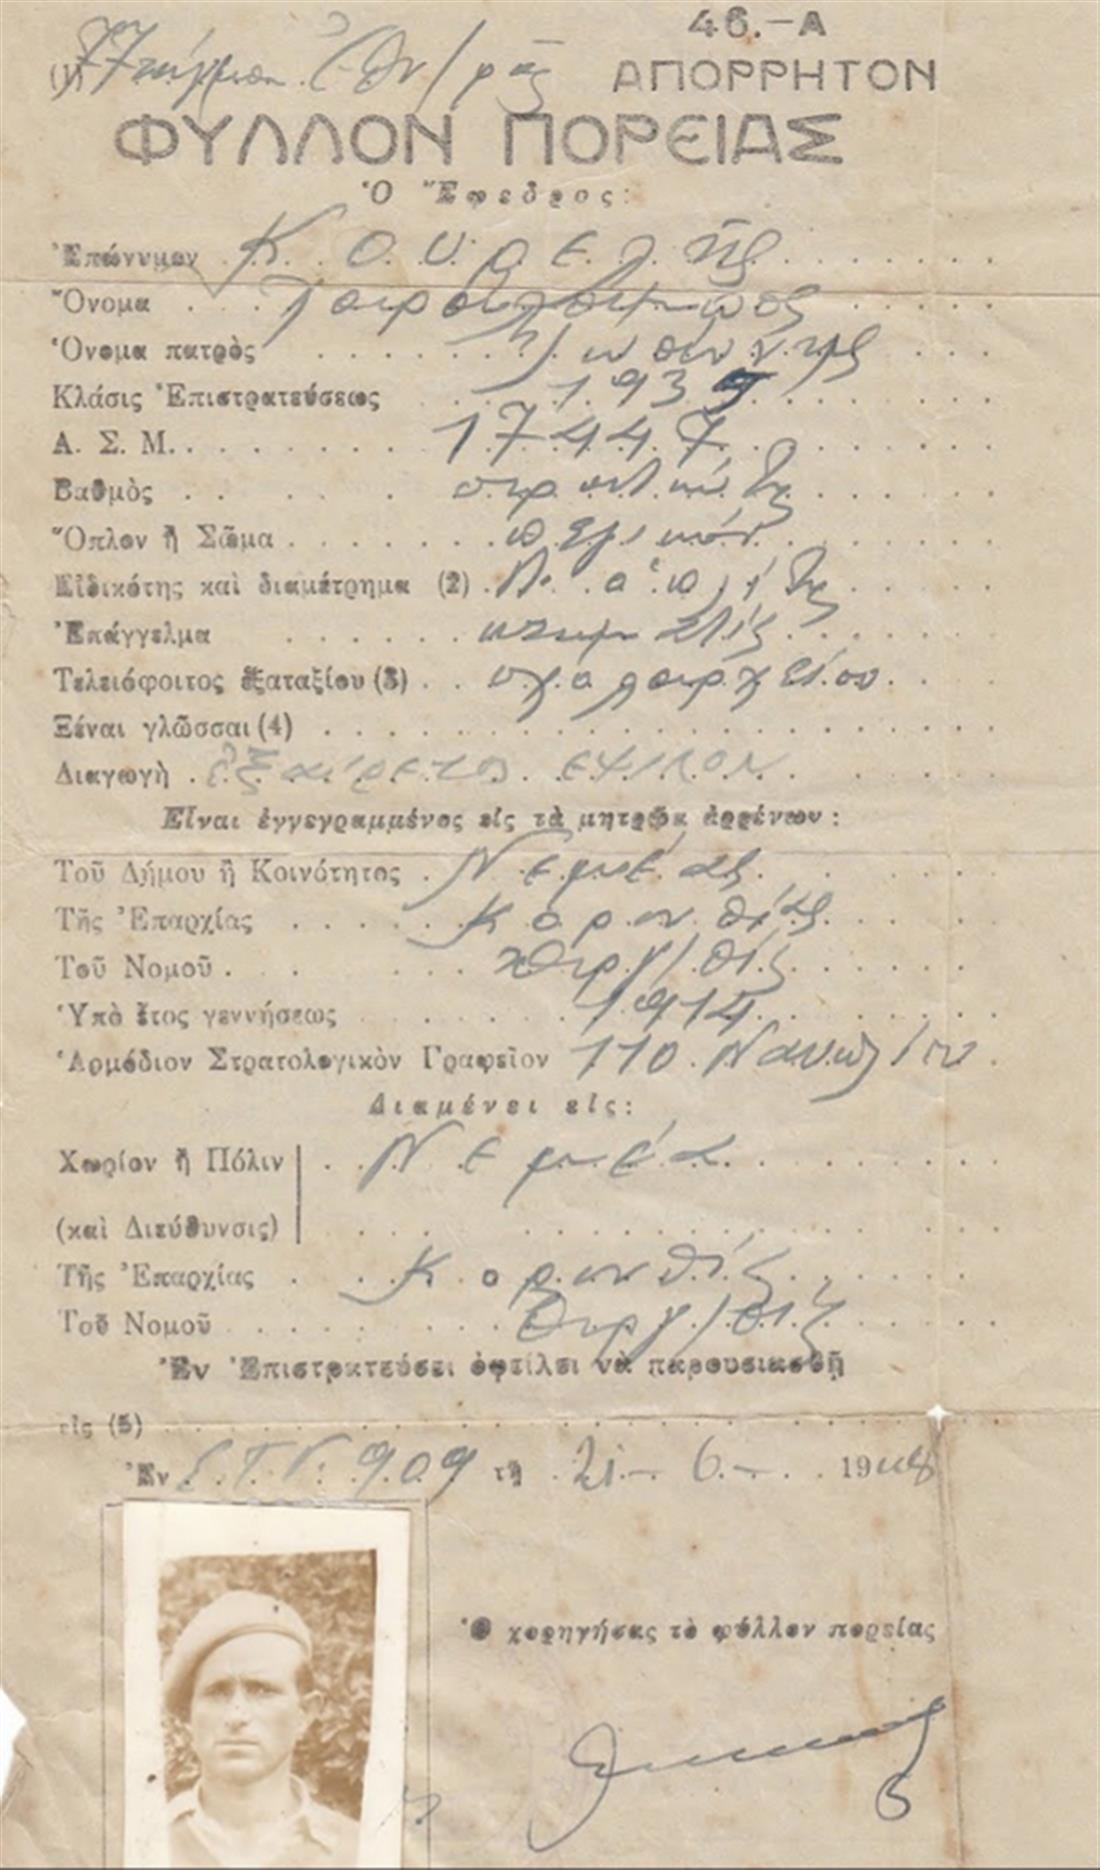 46.-Α
(1) 77 Τάγμα Ἐθν/ρᾶς ΑΠΟΡΡΗΤΟΝ
ΦΥΛΛΟΝ ΠΟΡΕΙΑΣ
Ὁ Ἔφεδρος:
Ἐπώνυμον Κουρελῆς
Ὄνομα Χαράλαμπος
Ὄνομα πατρὸς Ἰωάννης
Κλάσις Ἐπιστρατεύσεως 1935
Α. Σ. Μ. 17447
Βαθμὸς στρατιώτης
Ὅπλον ἢ Σῶμα πεζικόν
Εἰδικότης καὶ διαμέτρημα (2)
Ἐπάγγελμα κτηματίας
Τελειόφοιτος ἑξαταξίου (3) σχολαρχείου
Ξέναι γλῶσσαι (4)
Διαγωγὴ ἐξαίρετος
Εἶναι ἐγγεγραμμένος εἰς τὰ μητρῶα ἀρρένων:
Τοῦ Δήμου ἢ Κοινότητος Νεμέας
Τῆς Ἐπαρχίας Κορινθίας
Τοῦ Νομοῦ Ἀργ/θίας
Ὑπὸ ἔτος γεννήσεως 1914
Ἁρμόδιον Στρατολογικὸν Γραφεῖον 110 Ναυπλίου
Διαμένει εἰς:
Χωρίον ἢ Πόλιν Νεμέα
(καὶ Διεύθυνσις)
Τῆς Ἐπαρχίας Κορινθίας
Τοῦ Νομοῦ Ἀργ/θίας
Ἐν Ἐπιστρατεύσει ὀφείλει νὰ παρουσιασθῇ
εἰς (5)
Ἐν Σ.Τ.Γ. 909 τῇ 21-6-1948
Ὁ χορηγήσας τὸ φύλλον πορείας